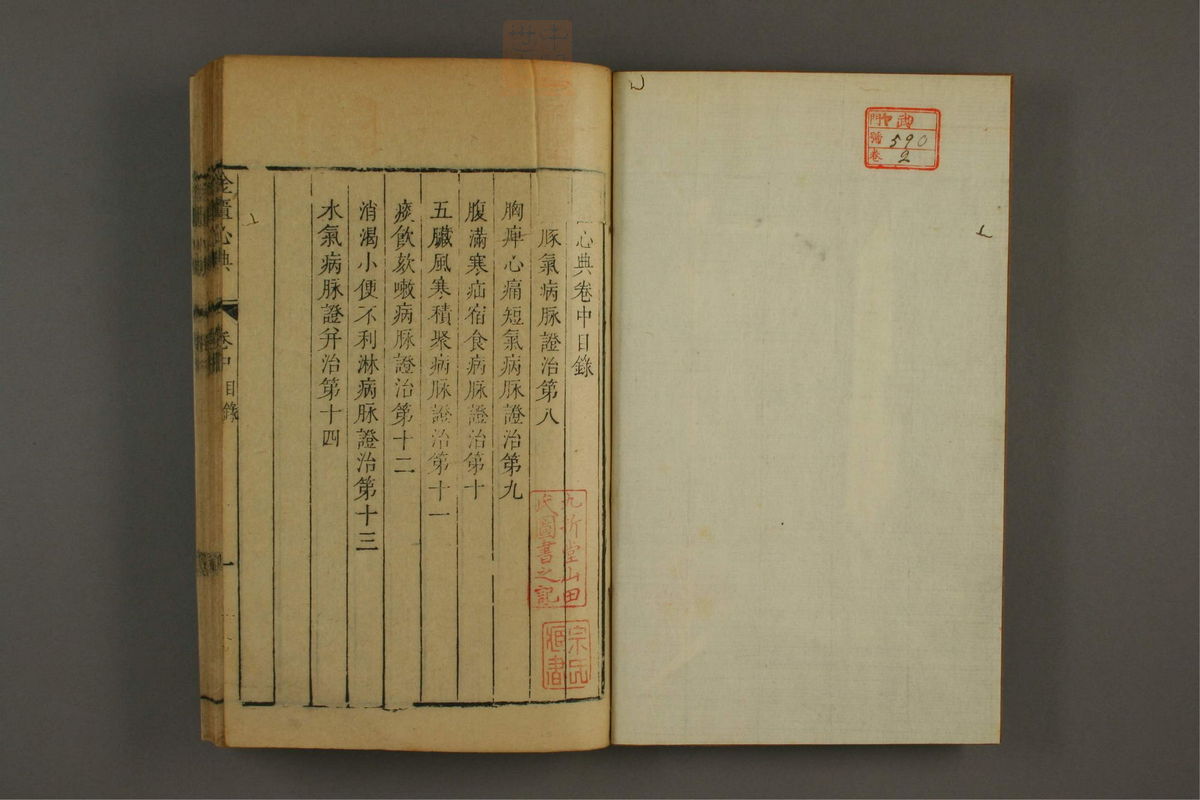 門 中 武
號 590
卷 2
心典卷中目錄
豚氣病脉證治第八
胸痺心痛短氣病脉證治第九
腹滿寒疝宿食病脉證治第十
五臟風寒積聚病脉證治第十一
痰飲欬嗽病脉證治第十二
消渴小便不利淋病脉證治第十三
水氣病脉證并治第十四
金匱心典 卷中目錄 一
九折堂山田
氏圖書之記